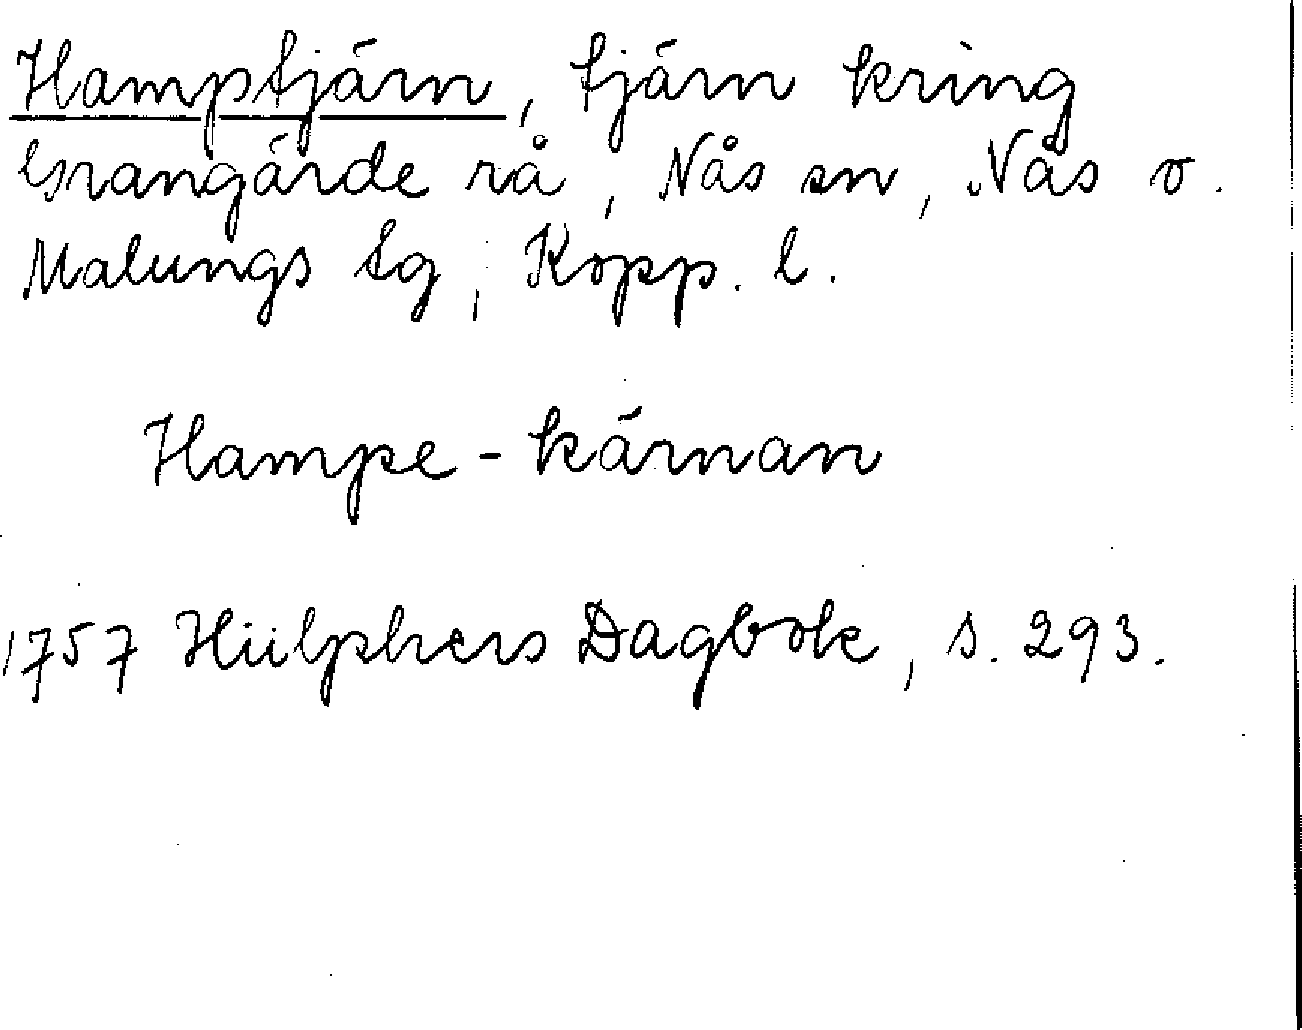 Hamptjärn, tjärn kring
Grangärde rå, Nås sn, Nås o.
Malungs tg, Kopp. l.
Hampe-kärnan
1757 Hülphers Dagbok, s. 293.